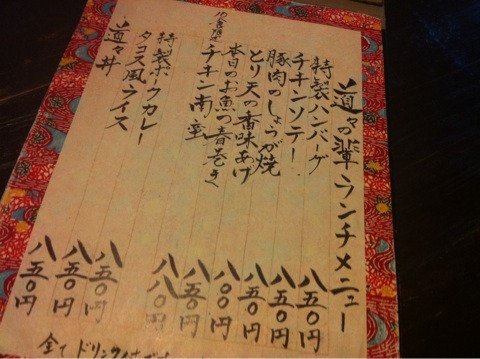 道々の輩ランチメニュー
特製ハンバーグ 八五〇円
チキンソテー 八五〇円
豚肉のしょうが焼 八五〇円
とり天の香味あげ 八〇〇円
本日のお魚の春巻き 八五〇円
10食限定 チキン南蛮 八八〇円
特製ポークカレー 八五〇円
タコス風ライス 八五〇円
道々丼 八五〇円
全て ドリンク付